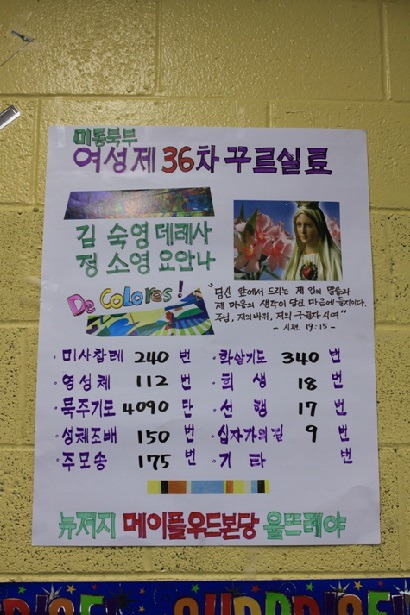 미동북부
여성 제 36차 꾸르실료
김 숙영 데레사
정 소영 요안나
De Colores!
"당신 앞에서 드리는 제 입의 말씀과
제 마음의 생각이 당신 마음에 들지이다.
주님, 저의 바위, 저의 구원자 시여"
- 시편. 19:15 -
· 미사참례 240 번
· 영성체 112 번
· 묵주기도 4090 단
· 성체조배 150 번
· 주모송 175 번
· 화살기도 340 번
· 희생 18 번
· 선행 17 번
· 십자가의길 9 번
· 기타 번
뉴저지 메이플우드본당 울뜨레야